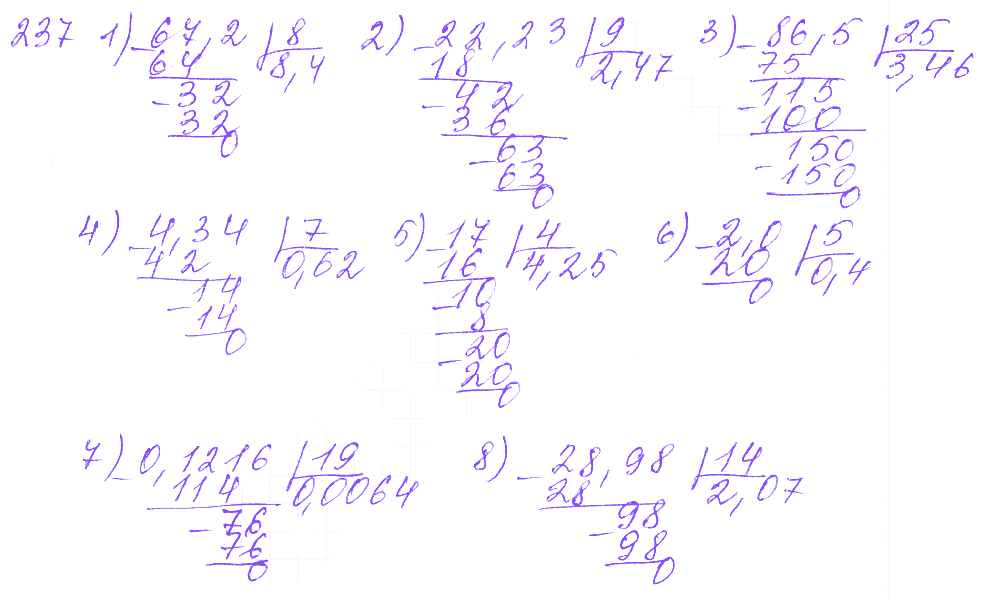 237 1) -67,2 | 8 2) -22,23 | 9 3) -86,5 | 25
64 8,4 18 2,47 75 3,46
-32 -42 -115
32 36 100
0 -63 150
63 -150
0 0
4) -4,34 | 7 5) -17 | 4 6) -2,0 | 5
42 0,62 16 4,25 20 0,4
14 -10 0
-14 8
0 -20
20
0
7) -0,1216 | 19 8) -28,98 | 14
114 0,0064 28 2,07
-76 -98
76 98
0 0